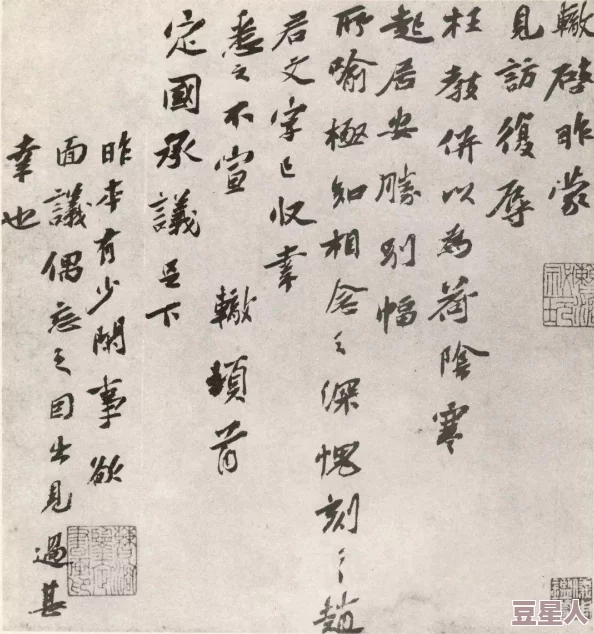 轍啓昨蒙
見訪復辱
枉教併以為荷陰寒
起居安勝別幅
所喻極知相念之深愧刻〻趙
君文字已收幸
悉之不宣 轍頓首
定國承議足下
昨本有少閑事欲
面議偶忘之因出見過甚
幸也
豆星人